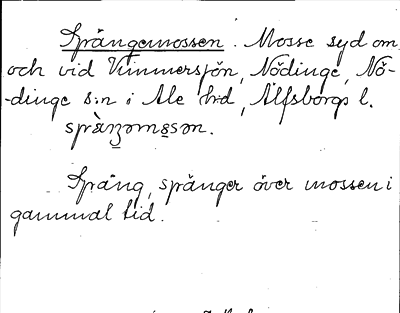 Spångemossen. Mosse syd om
och vid Vimmersjön, Nödinge, Nö-
-dinge s:n i Ale hd, Älfsborgs l.
spàŋ̠əmo̠sən.
Spång, spänger över mossen i
gammal tid.